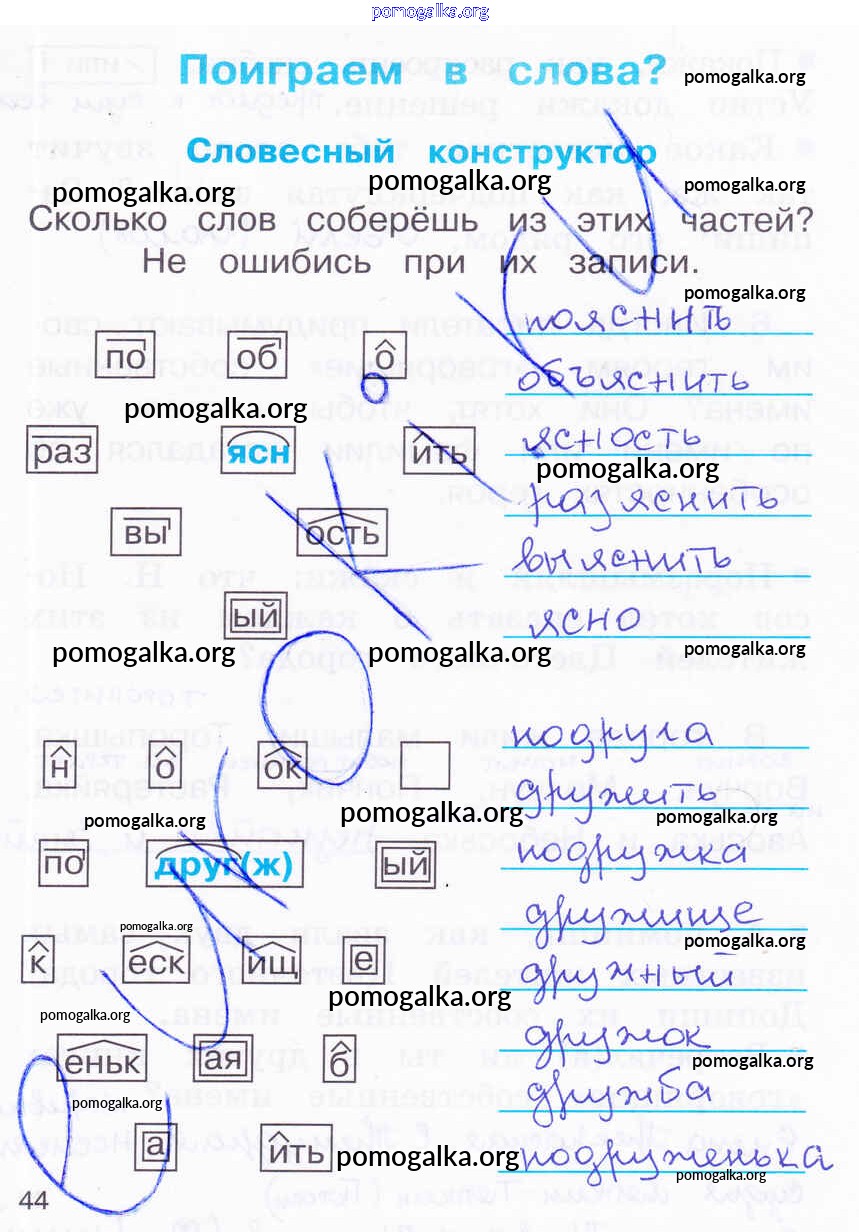 pomogalka.org
Поиграем в слова?
pomogalka.org
Словесный конструктор
pomogalka.org
pomogalka.org
pomogalka.org
Сколько слов соберёшь из этих частей?
Не ошибись при их записи.
pomogalka.org
пояснить
по об о
объяснить
pomogalka.org
ясность
раз ясн ить
pomogalka.org
разяснить
вы ость
выяснить
ый
ясно
pomogalka.org
pomogalka.org
pomogalka.org
подруга
н о ок
дружить
pomogalka.org
pomogalka.org
pomogalka.org
подружка
по друг(ж) ый
дружище
pomogalka.org
pomogalka.org
к еск ищ е
дружный
pomogalka.org
pomogalka.org
дружок
еньк ая б
pomogalka.org
дружба
pomogalka.org
а ить
pomogalka.org
подруженька
pomogalka.org
44